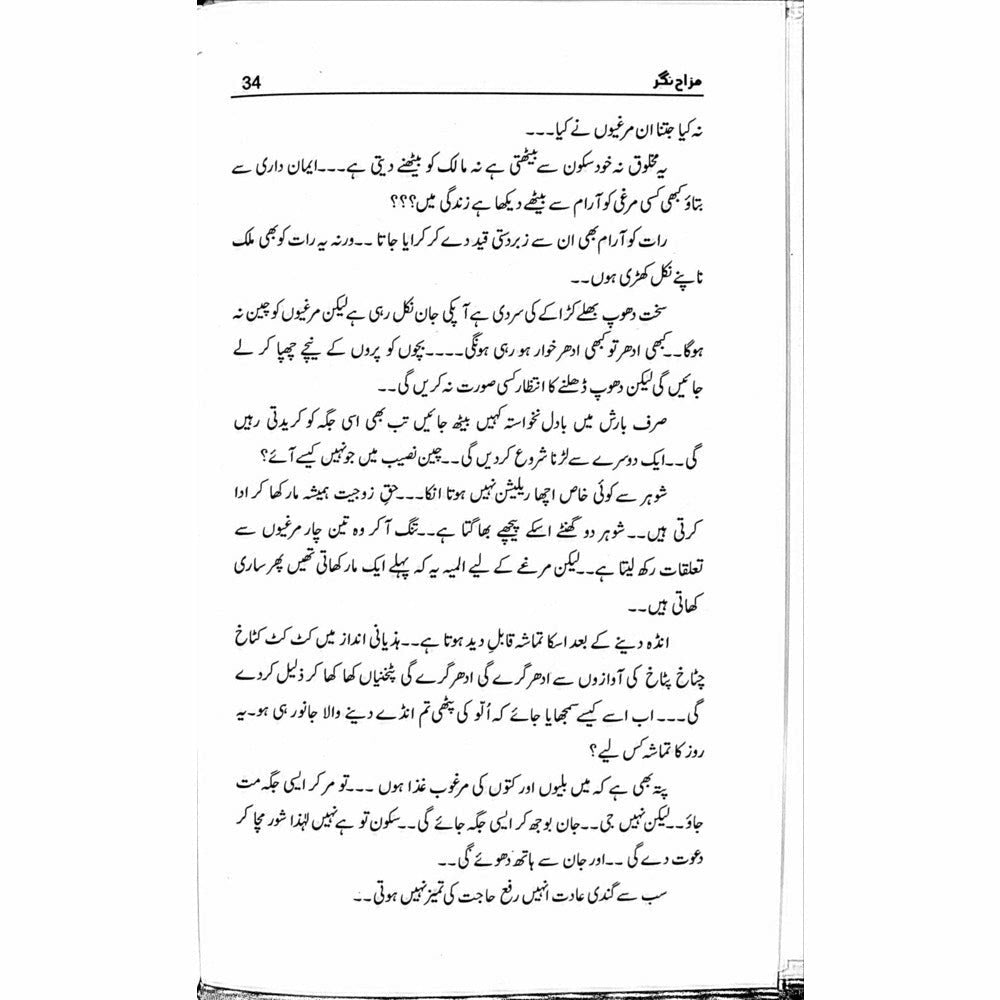 مزاح نگر
34
نہ کیا جتنا ان مرغیوں نے کیا۔۔۔
یہ مخلوق نہ خود سکون سے بیٹھتی ہے نہ مالک کو بیٹھنے دیتی ہے۔۔۔ایمان داری سے
بتاؤ کبھی کسی مرغی کو آرام سے بیٹھے دیکھا ہے زندگی میں؟؟؟
رات کو آرام بھی ان سے زبردستی قید دے کر کرایا جاتا ۔۔ورنہ یہ رات کو بھی ملک
ناپنے نکل کھڑی ہوں۔۔
سخت دھوپ بھلے کڑاکے کی سردی ہے آپکی جان نکل رہی ہے لیکن مرغیوں کو چین نہ
ہوگا۔۔کبھی ادھر تو کبھی ادھر خوار ہو رہی ہونگی۔۔۔۔بچوں کو پروں کے نیچے چھپا کر لے
جائیں گی لیکن دھوپ ڈھلنے کا انتظار کسی صورت نہ کریں گی۔۔
صرف بارش میں بادل نخواستہ کہیں بیٹھ جائیں تب بھی اسی جگہ کو کریدتی رہیں
گی۔۔ایک دوسرے سے لڑنا شروع کردیں گی۔۔چین نصیب میں جو نہیں کیسے آئے؟
شوہر سے کوئی خاص اچھا ریلیشن نہیں ہوتا انکا۔۔۔حقِ زوجیت ہمیشہ مار کھا کر ادا
کرتی ہیں۔۔شوہر دو گھنٹے اسکے پیچھے بھاگتا ہے۔۔تنگ آکر وہ تین چار مرغیوں سے
تعلقات رکھ لیتا ہے۔۔لیکن مرغے کے لیے المیہ یہ کہ پہلے ایک مار کھاتی تھیں پھر ساری
کھاتی ہیں۔۔
انڈہ دینے کے بعد اسکا تماشہ قابلِ دید ہوتا ہے۔۔ہذیانی انداز میں کٹ کٹ کٹاخ
چٹاخ پٹاخ کی آوازوں سے ادھر گرے گی ادھر گرے گی پٹخنیاں کھا کھا کر ذلیل کردے
گی۔۔۔اب اسے کیسے سمجھایا جائے کہ اُلّو کی پٹھی تم انڈے دینے والا جانور ہی ہو۔یہ
روز کا تماشہ کس لیے؟
پتہ بھی ہے کہ میں بلیوں اور کتوں کی مرغوب غذا ہوں ۔۔۔تو مر کر ایسی جگہ مت
جاؤ۔۔لیکن نہیں جی۔۔جان بوجھ کر ایسی جگہ جائے گی۔۔سکون تو ہے نہیں لہٰذا شور مچا کر
دعوت دے گی ۔۔اور جان سے ہاتھ دھوئے گی۔۔
سب سے گندی عادت انہیں رفع حاجت کی تمیز نہیں ہوتی۔۔